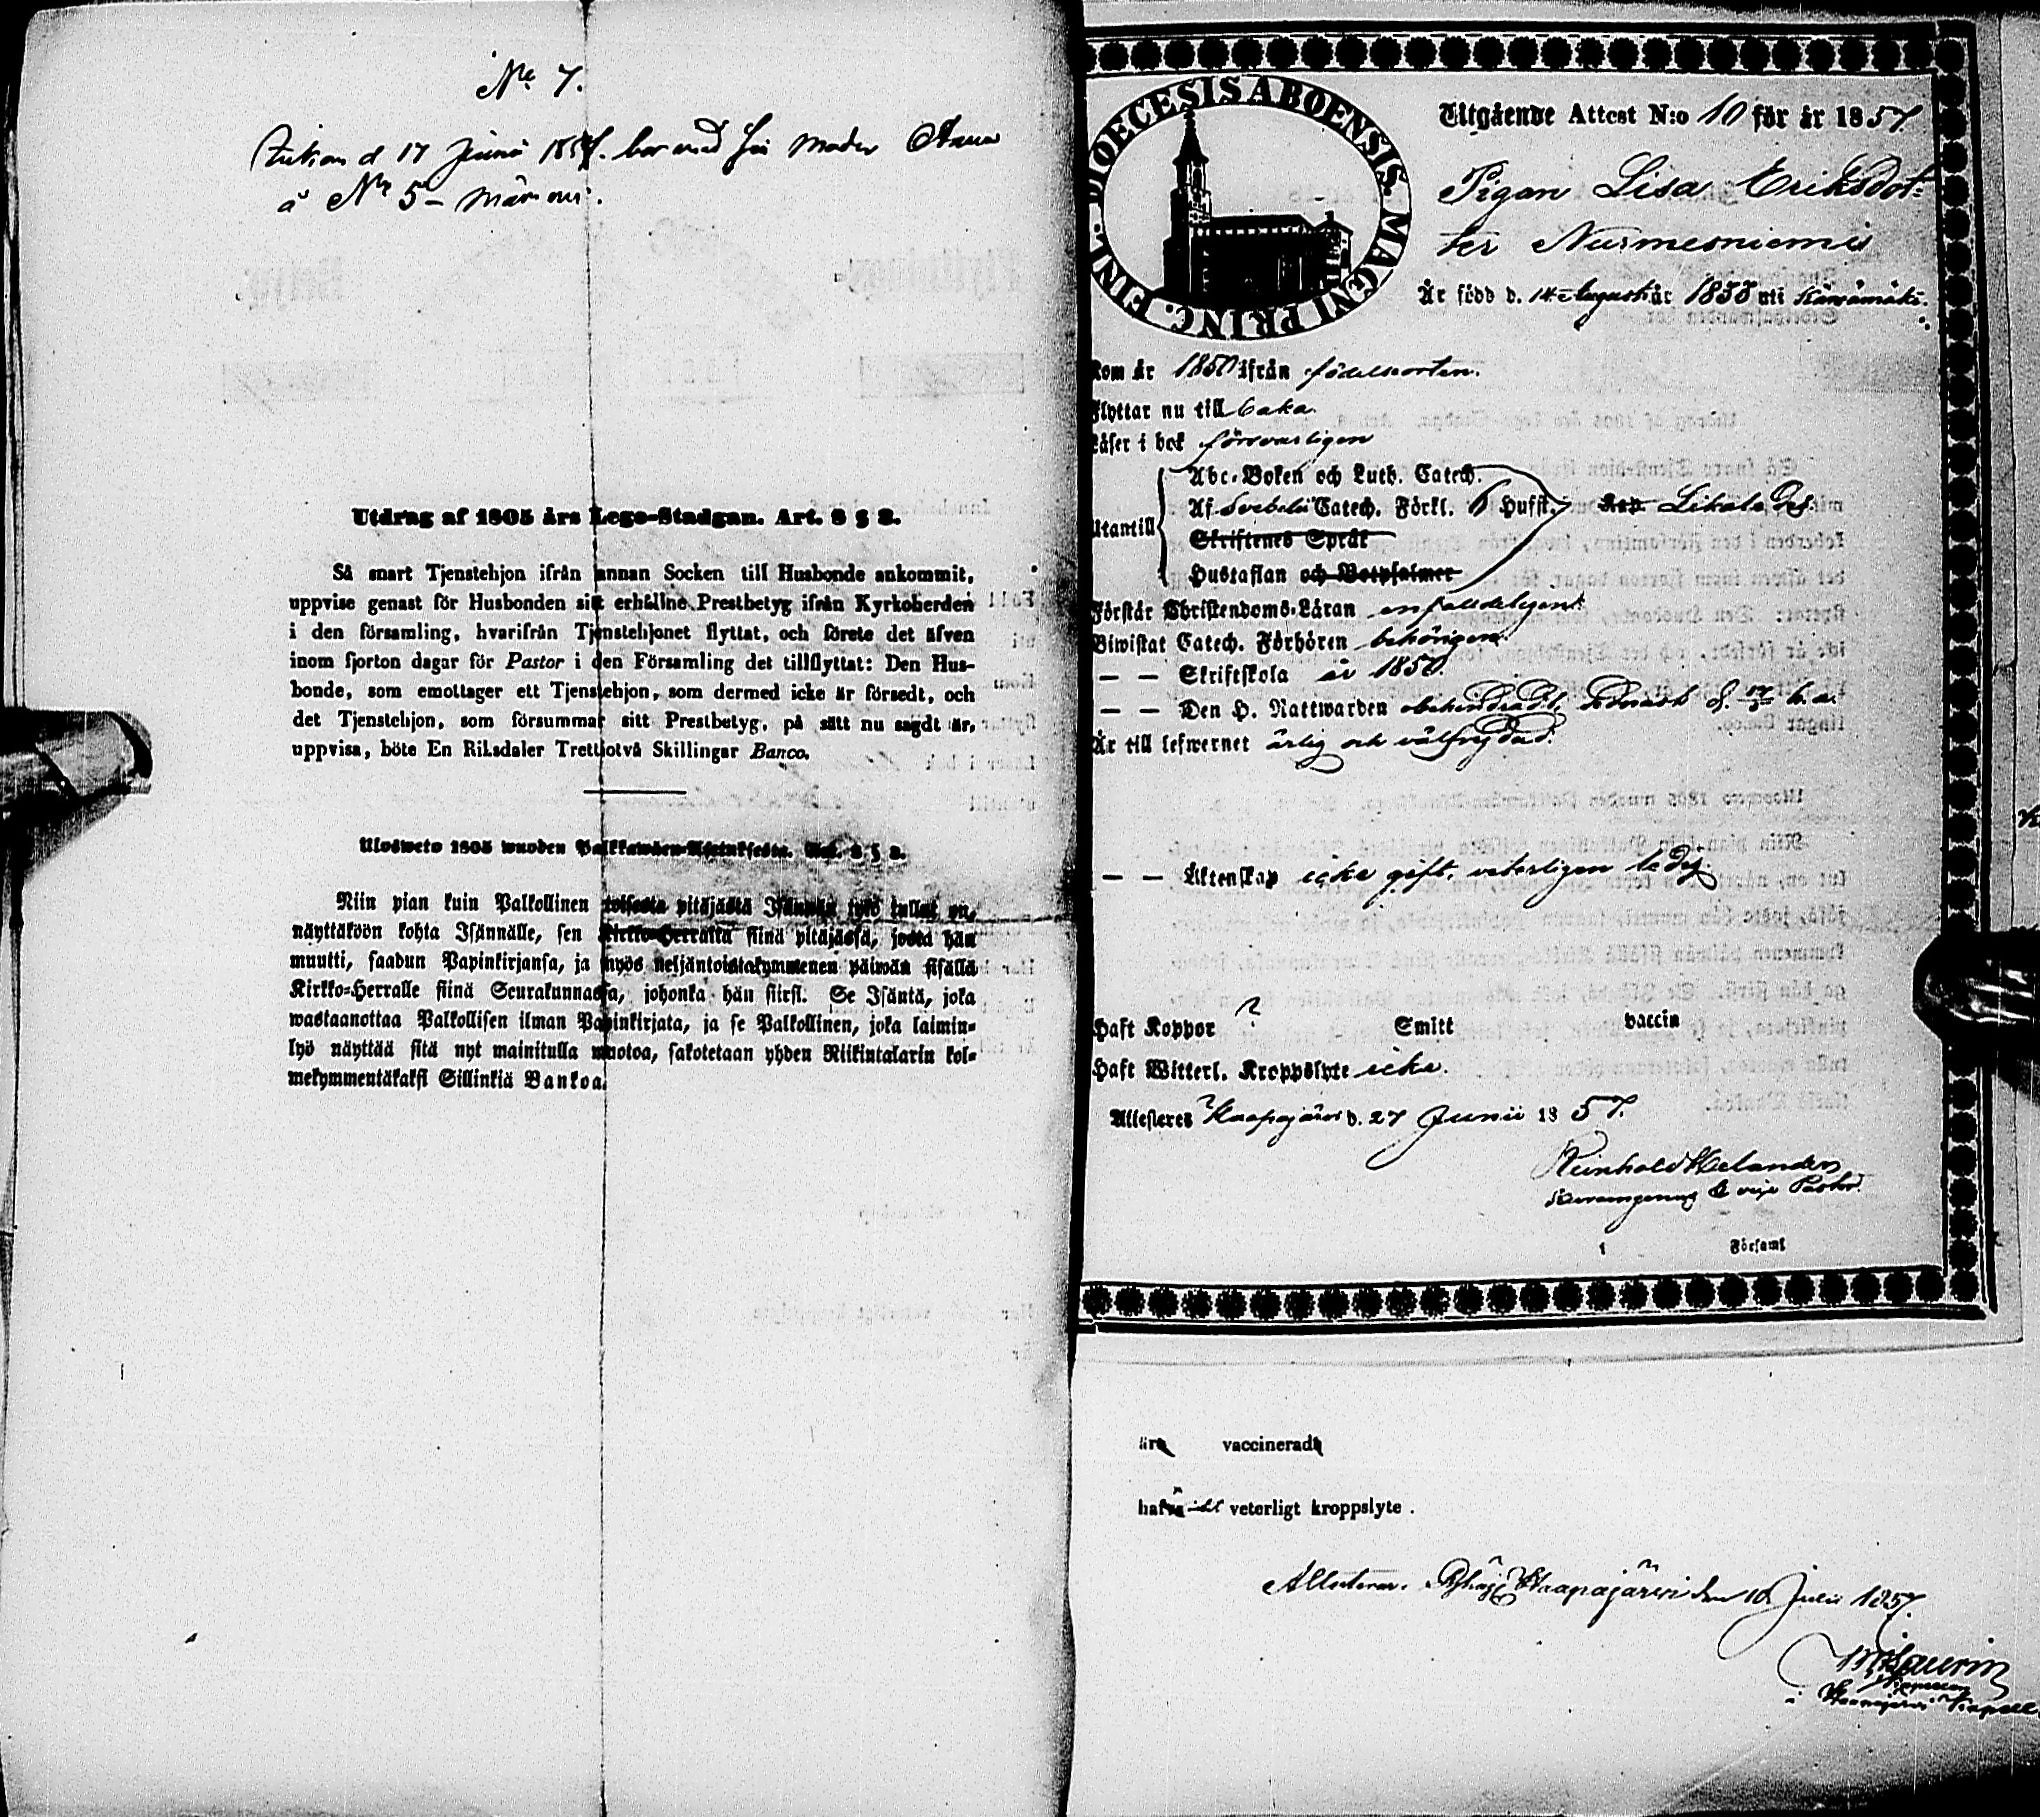 No 7.
d 17 Junii 1857. bor med sin moder Anna
å No 5
Utdrag af 1805 års Lego-Stadgan. Art. 8 § 8.
Så snart Tjenstehjon ifrån annan Socken till Husbonde ankommit,
uppvise genast för Husbonden sitt erhållne Prestbetyg ifrån Kyrkoherden
i den församling, hvarifrån Tjenstehjonet flyttat, och förete det äfven
inom fjorton dagar för Pastor i den Församling det tillflyttat: Den Hus-
bonde, som emottager ett Tjenstehjon, som dermed icke är försedt, och
det Tjenstehjon, som försummar sitt Prestbetyg, på sätt nu sagdt är,
uppvisa, böte En Riksdaler Trettiotvå Skillingar Banco.
Ulosweto 1805 wuoden Palkkawäen-Asetuksesta. Art. 8 § 8.
Niin pian kuin Palkollinen toisesta pitäjästä Isännän työ tullut on,
näyttäköön kohta Isännälle, sen Kirkko-Herralta siinä pitäjässä, josta hän
muutti, saadun Papinkirjansa, ja myös neljäntoistakymmenen päiwän sisällä
Kirkko-Herralle siinä Seurakunnassa, johonka hän siirsi. Se Isäntä, joka
wastaanottaa Palkollisen ilman Papinkirjata, ja se Palkollinen, joka laimin-
lyö näyttää sitä nyt mainitulla muotoa, sakotetaan yhden Riikintalarin kol-
mekymmentäkaksi Sillinkiä Bankoa.
DIOECESIS ABOENSIS. MAGNI PRINC. FINL.
Utgående Attest N:o 10 för år 1857.
Pigan Lisa Eriksdot-
ter Nurmesniemi
Är född d. 14 Augusti år 1835 uti Kärsämäki.
Kom år 1850 ifrån födelseorten.
Flyttar nu tillbaka
Läser i bok försvarligen
Utantill
Abc-Boken och Luth. Catech.
Af Svebelii Catech. Förkl. 6 Hufst.
Skriftenes Språk
Hustaflan och Botpsalmer
Likaledes.
Förstår Christendoms-Läran enfaldeligen
Biwistat Catech. Förhören behörigen
— — Skriftskola år 1850.
— — Den H. Nattwarden obehindradt,
Är till lefwernet ärlig och välfrejdad.
— — Äktenskap icke gift, veterligen ledig.
Haft Koppor ? Smitt vaccin
Haft Witterl. Kroppslyte icke.
Attesteres Haapajärvi d. 27 Junii 1857.
Reinhold Helander
vice Pastor.
i Församl
ära vaccinerade
hafva veterligt kroppslyte .
Attesterar. Pyhäj. Haapajärvi den 10 Julii 1857.
i Haapajärvi Kapell